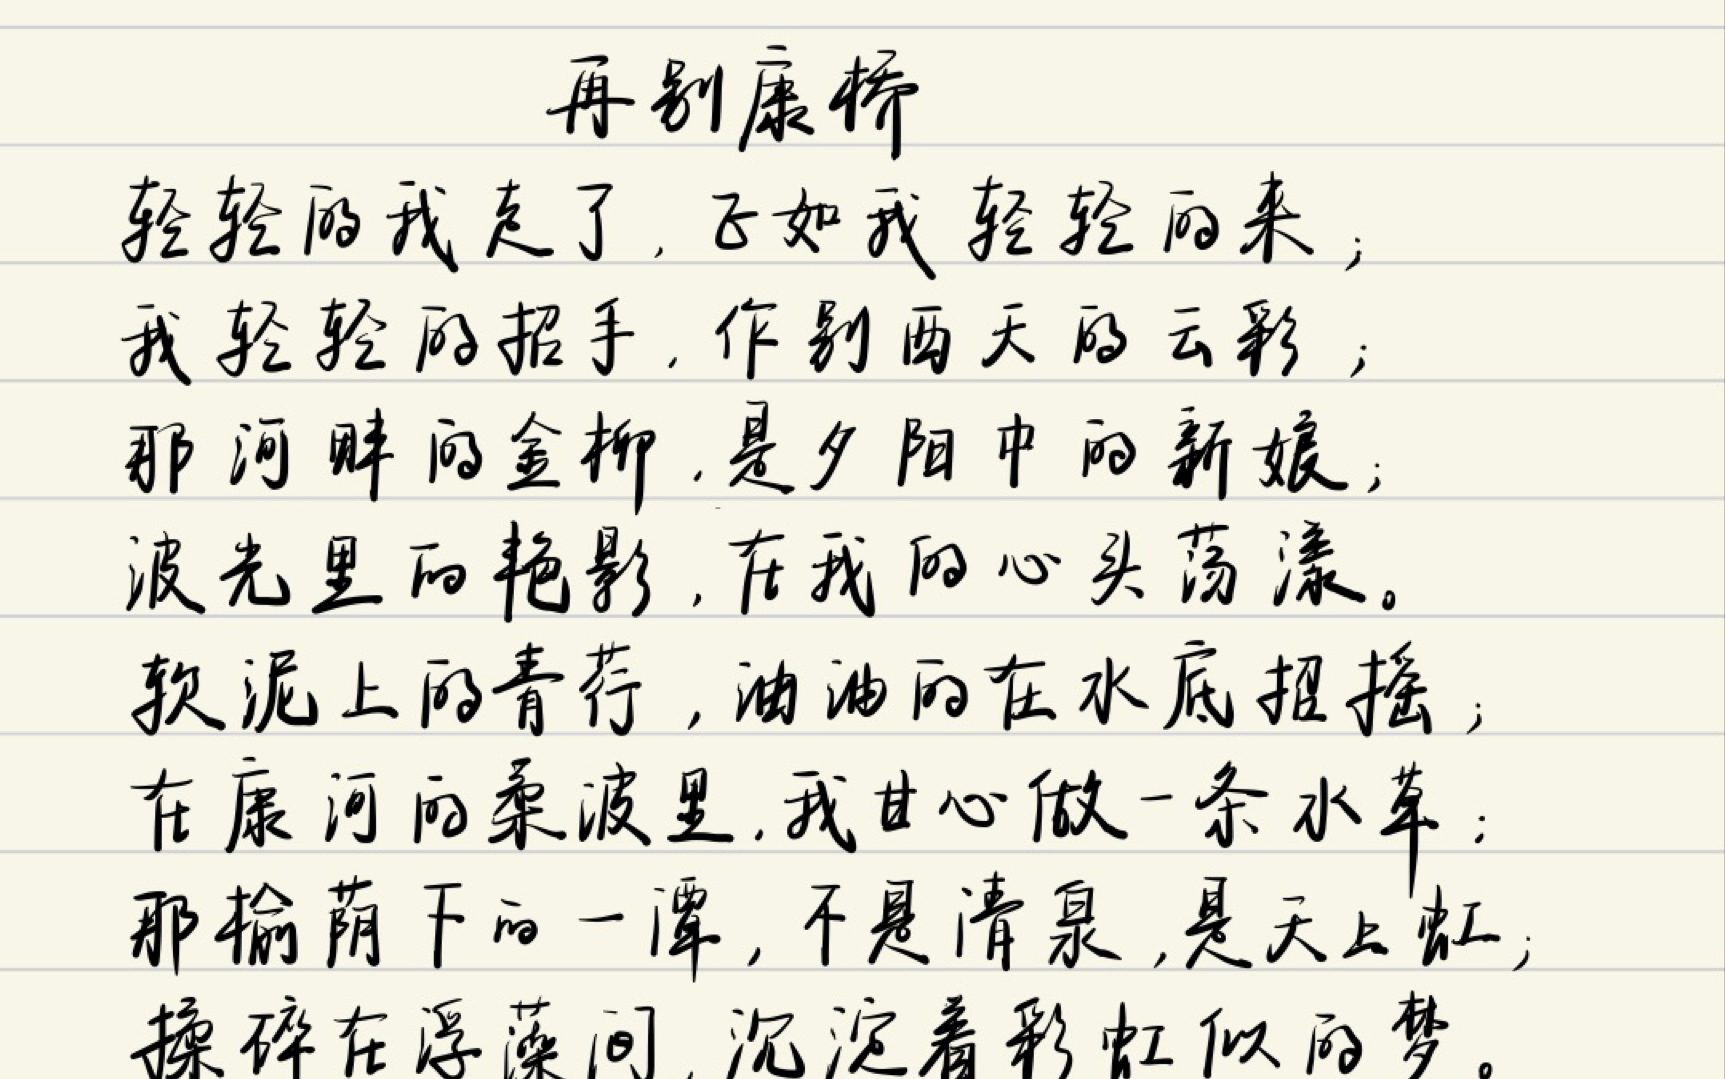 再别康桥
轻轻的我走了，正如我轻轻的来；
我轻轻的招手，作别西天的云彩；
那河畔的金柳，是夕阳中的新娘；
波光里的艳影，在我的心头荡漾。
软泥上的青荇，油油的在水底招摇；
在康河的柔波里，我甘心做一条水草；
那榆荫下的一潭，不是清泉，是天上虹；
揉碎在浮藻间，沉淀着彩虹似的梦。